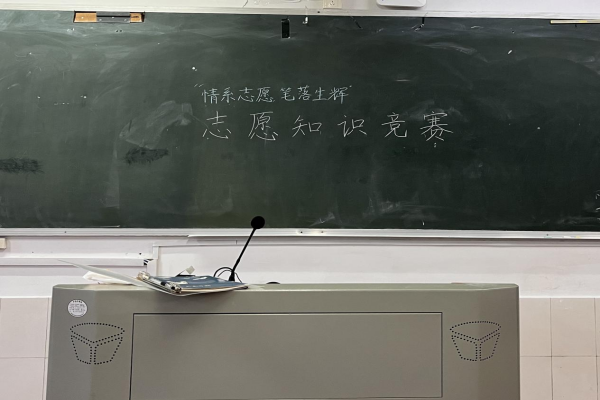 "情系志愿 笔落生辉"
志愿知识竞赛